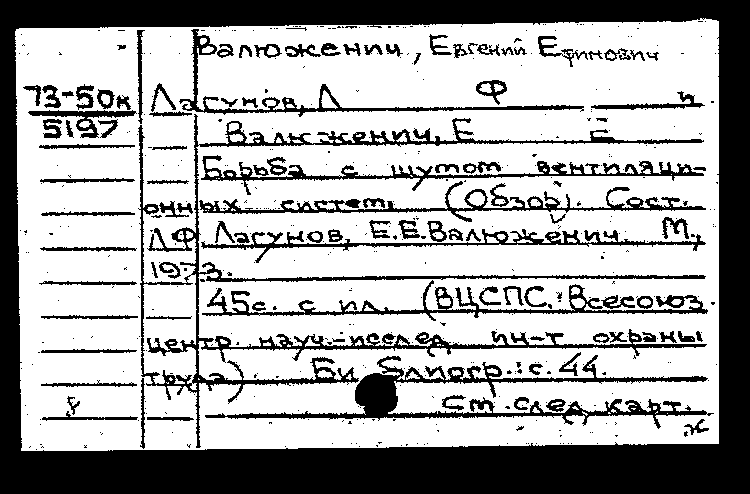 Валюженич, Евгений Ефимович
73-50к Лагунов, Л Ф и
5197 Валюженич, Е Е
Борьба с шумом вентиляци-
онных систем. (Обзор). Сост.
Л.Ф. Лагунов, Е.Е. Валюженич. М.,
1973.
45с. с ил. (ВЦСПС. Всесоюз.
центр науч.-исслед. ин-т охраны
труда) Библиогр.: с. 44.
См. след. карт.
ж